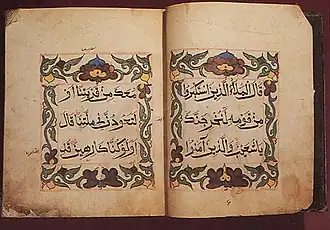 قال الملأ الذين استكبروا
من قومه لنخرجنك
يا شعيب والذين آمنوا
معك من قريتنا أو
لتعودن في ملتنا قال
أولو كنا كارهين قد